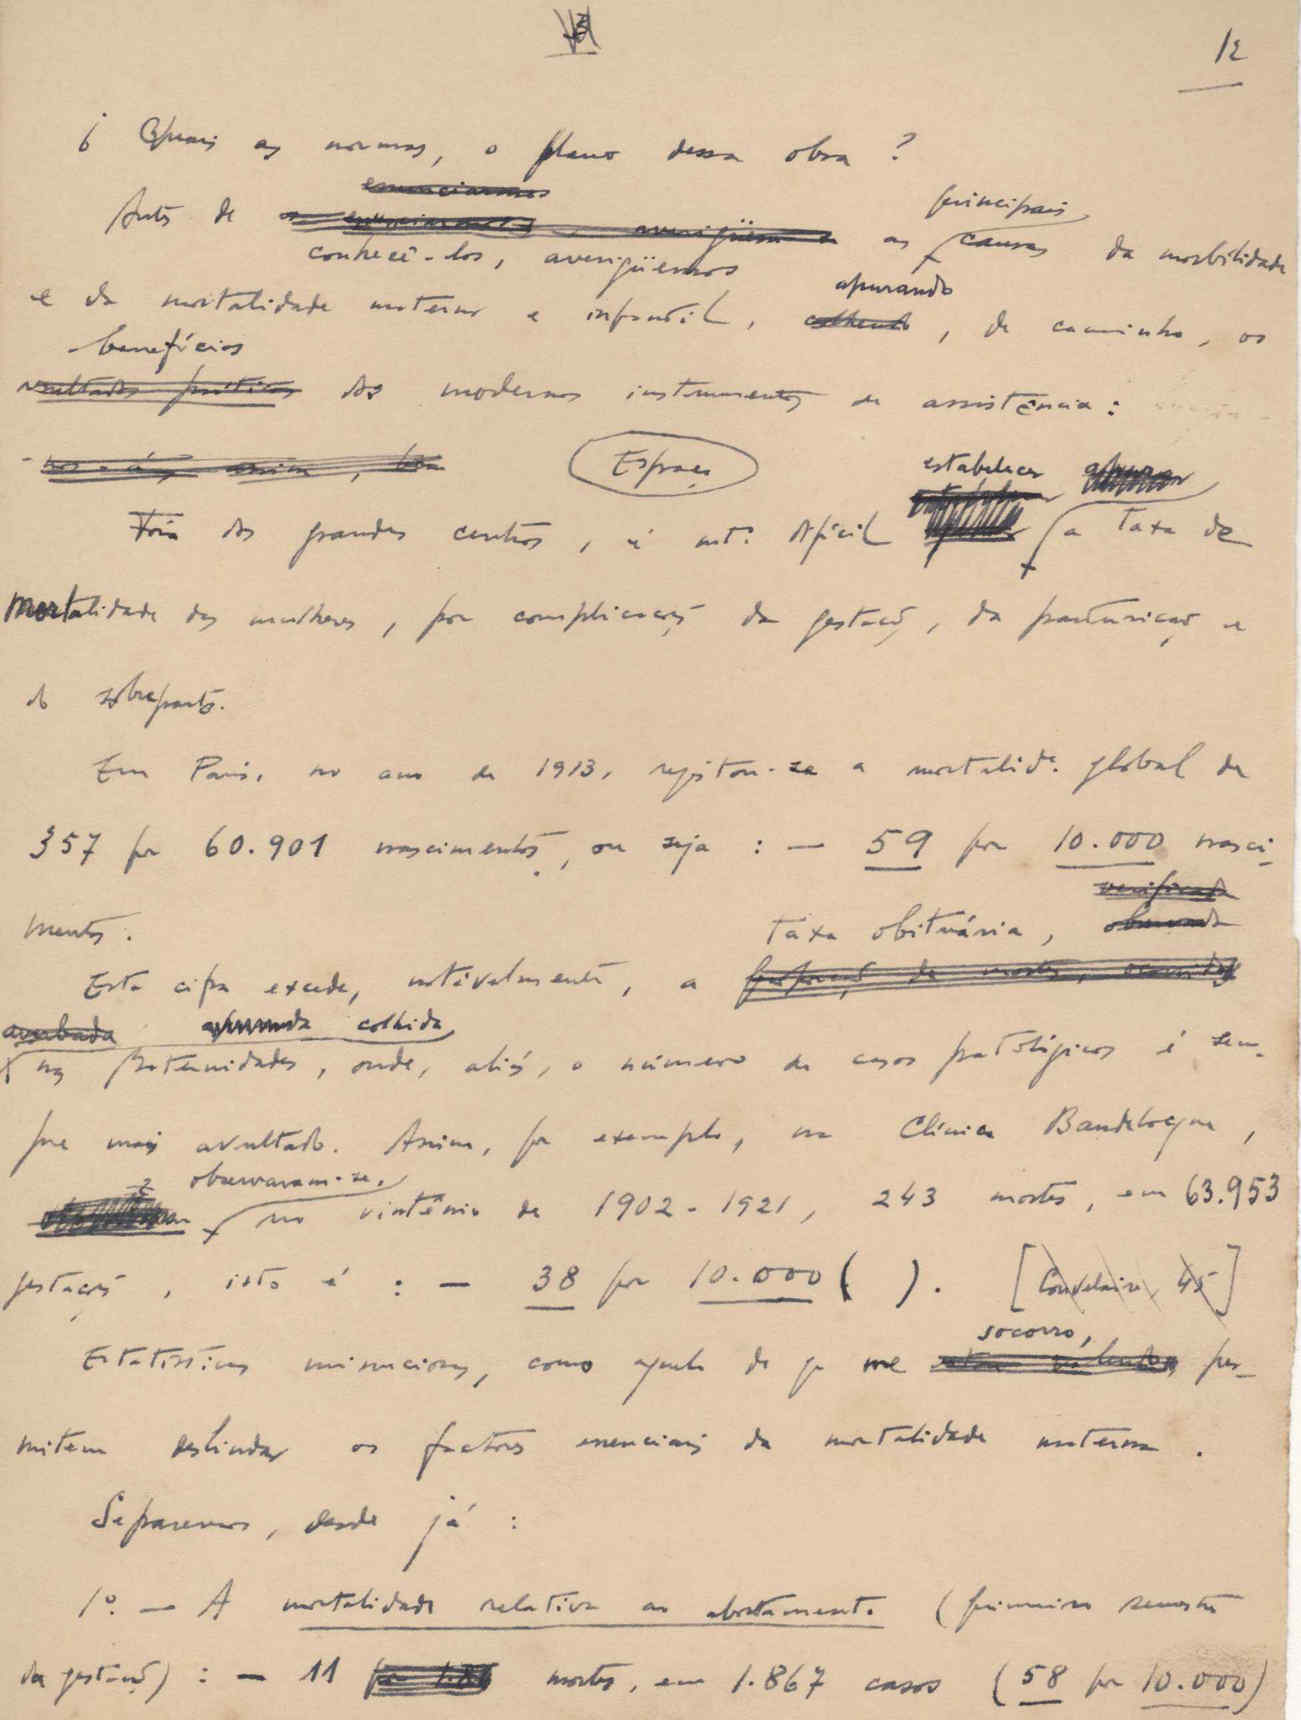 12
¿ Quais as normas, o plano dessa obra ?
enunciarmos
principais
Antes de as causas da morbilidade
conhecê-los, averigüemos
apurando
e da mortalidade materna e infantil, colhendo, de caminho, os
benefícios
resultados práticos dos modernos instrumentos de assistência :
Espaço
estabelecer apurar
Fora dos grandes centros, é mt.º difícil a taxa de
mortalidade das mulheres, por complicações da gestação, da parturição e
do sobreparto.
Em Paris, no ano de 1913, registou-se a mortalid.e global de
357 por 60.901 nascimentos, ou seja : — 59 por 10.000 nasci-
verificada
mentos. taxa obituária, observada
Esta cifra excede, notàvelmente, a proporção de mortes, ocorridas
averbada apurada colhida
nas Maternidades, onde, aliás, o número de casos patológicos é sem-
pre mais avultado. Assim, por exemplo, na Clínica Baudelocque,
observaram-se,
no vintênio de 1902-1921, 243 mortes, em 63.953
gestações, isto é : — 38 por 10.000 ( ). [Couvelaire, 45]
socorro,
Estatísticas minuciosas, como aquela de q. me per-
mitem deslindar os factores essenciais da mortalidade materna.
Separemos, desde já :
1.º — A mortalidade relativa ao abortamento (primeiro semestre
da gestação) : — 11 por 1.86 mortes, em 1.867 casos (58 por 10.000)